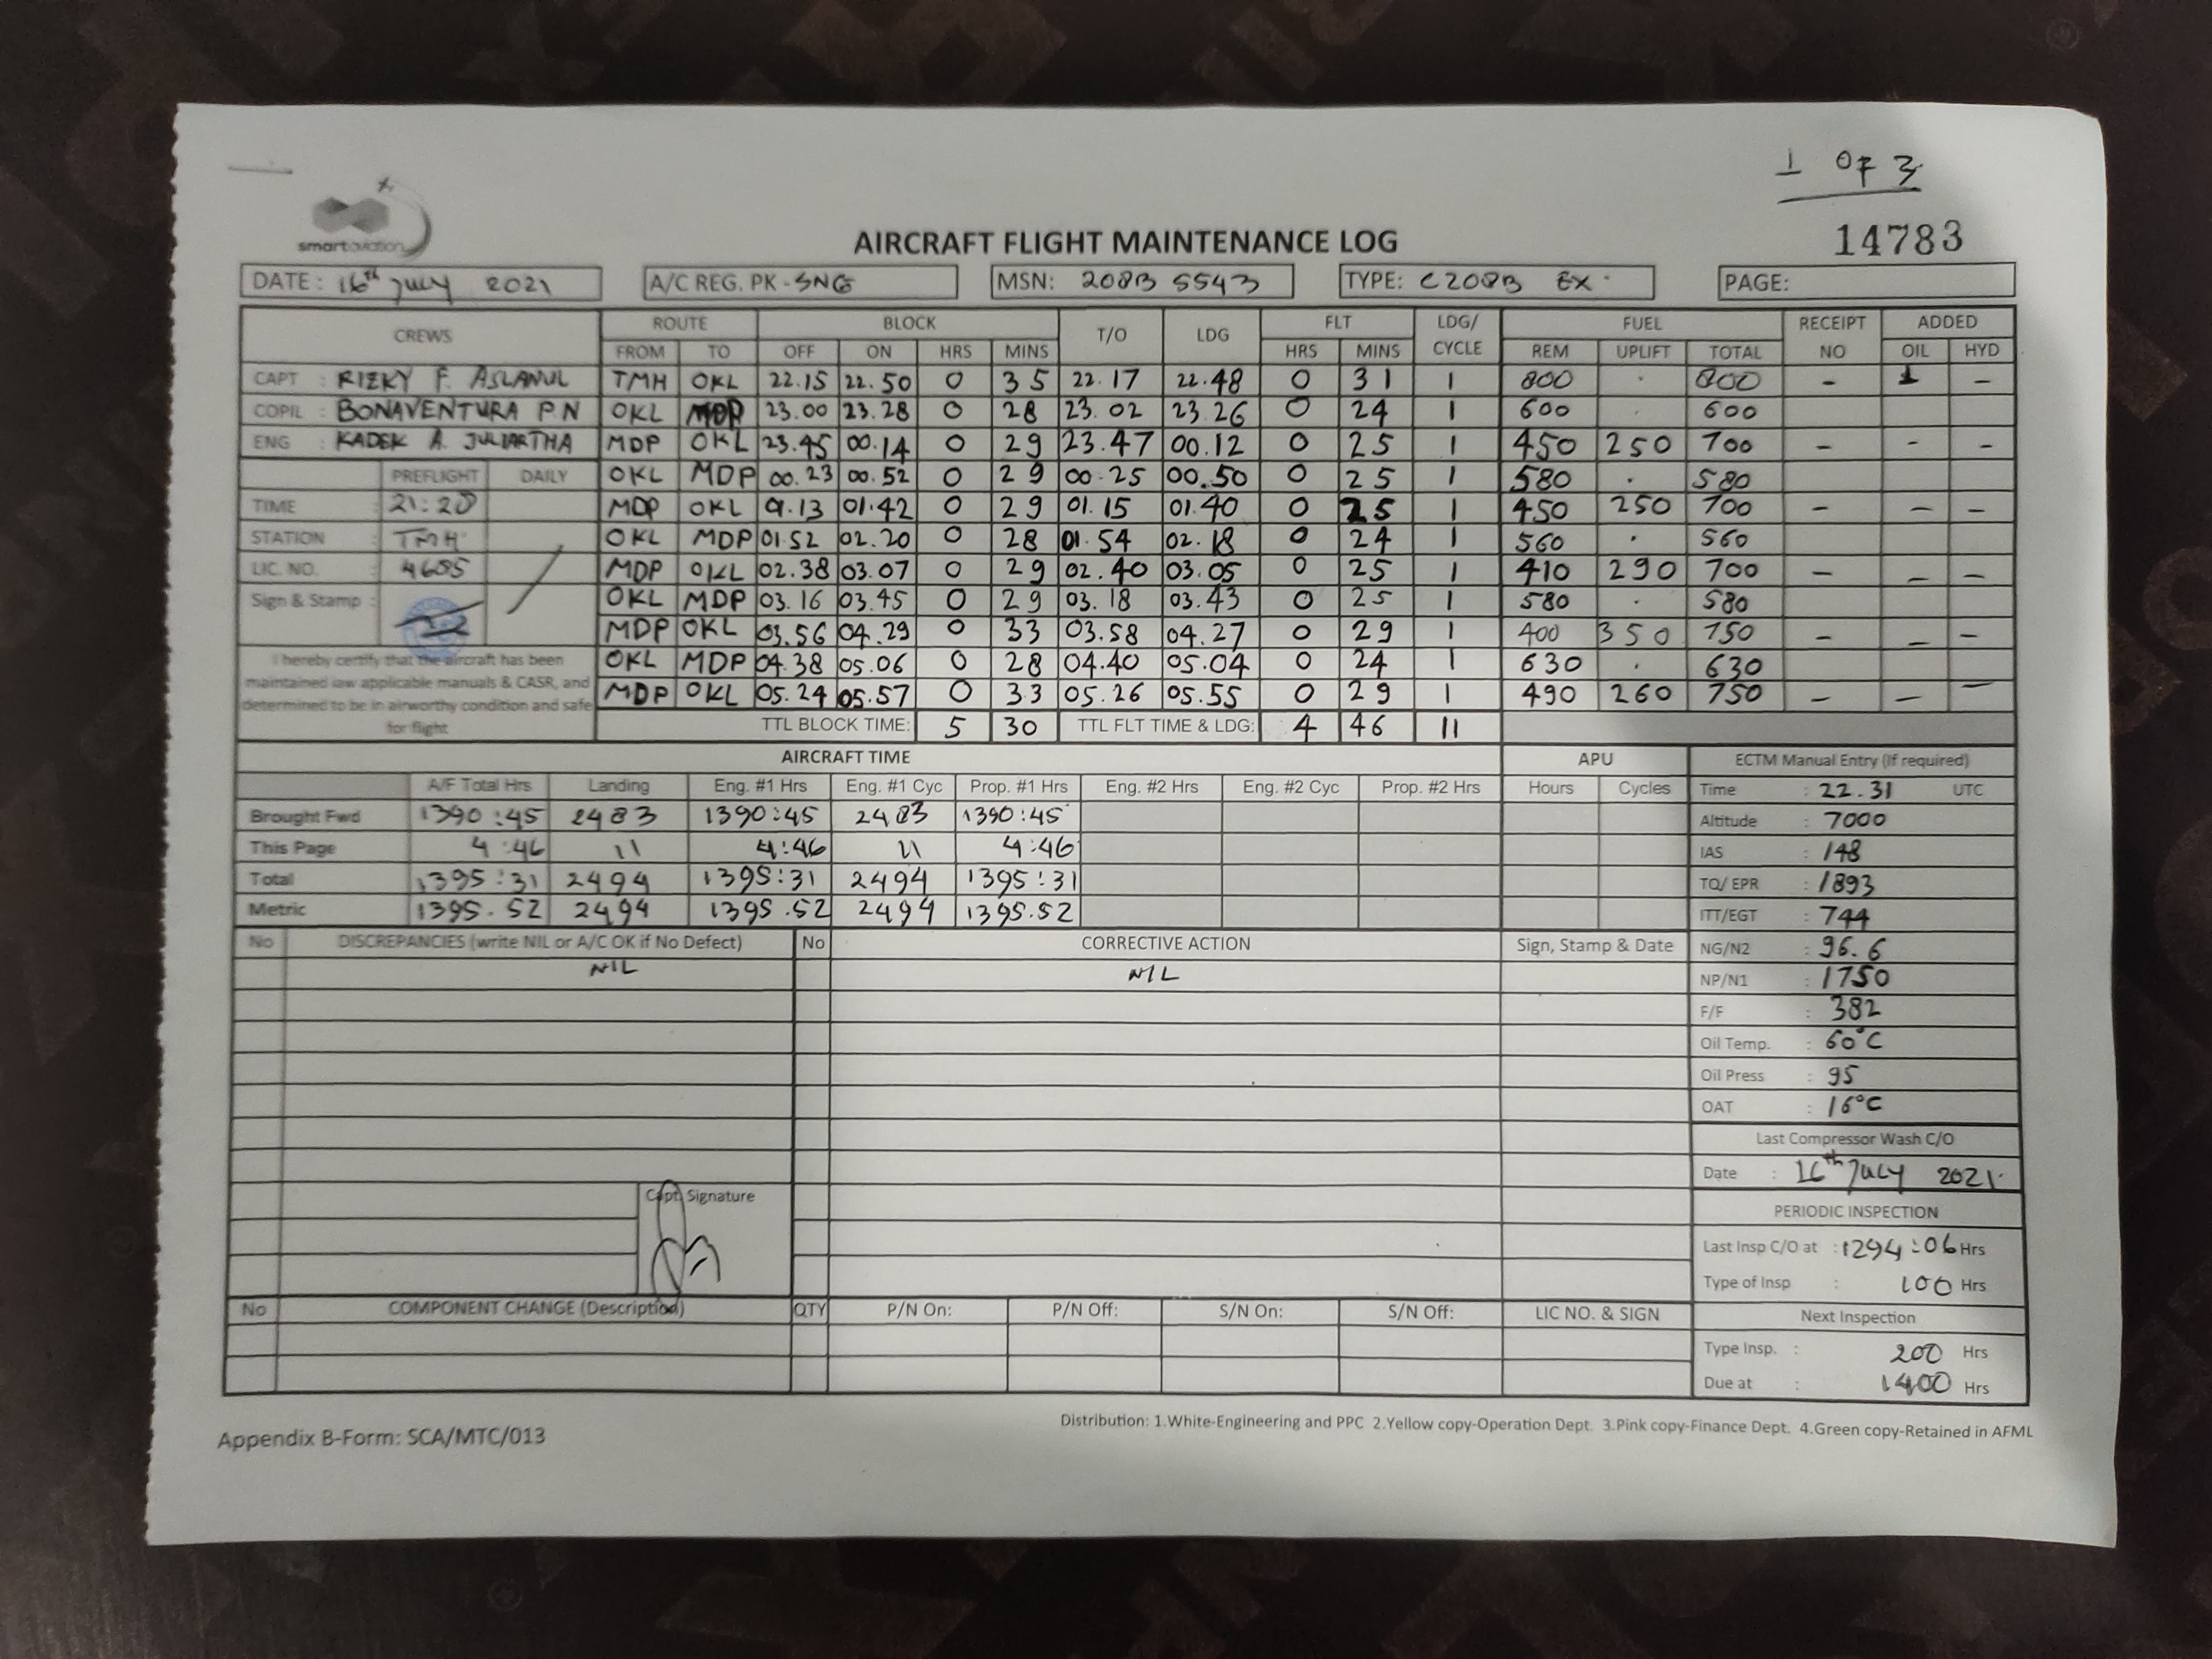 1 OF 3
smartaviation
AIRCRAFT FLIGHT MAINTENANCE LOG
14783
DATE : 16th July 2021 A/C REG. PK - SNG MSN: 208B 5543 TYPE: C208B EX PAGE:
CREWS ROUTE BLOCK T/O LDG FLT LDG/ CYCLE FUEL RECEIPT NO ADDED
FROM TO OFF ON HRS MINS HRS MINS REM UPLIFT TOTAL OIL HYD
CAPT : RIZKY F. ASLANUL TMH OKL 22.15 22.50 0 35 22.17 22.48 0 31 1 800 . 800 - 1 -
COPIL : BONAVENTURA P.N OKL MDP 23.00 23.28 0 28 23.02 23.26 0 24 1 600 . 600
ENG : KADEK A. JULIARTHA MDP OKL 23.45 00.14 0 29 23.47 00.12 0 25 1 450 250 700 - - -
PREFLIGHT DAILY OKL MDP 00.23 00.52 0 29 00.25 00.50 0 25 1 580 . 580
TIME : 21:20 MDP OKL 01.13 01.42 0 29 01.15 01.40 0 25 1 450 250 700 - - -
STATION : TMH OKL MDP 01.52 02.20 0 28 01.54 02.18 0 24 1 560 . 560
LIC. NO. : 4685 MDP OKL 02.38 03.07 0 29 02.40 03.05 0 25 1 410 290 700 - - -
Sign & Stamp : OKL MDP 03.16 03.45 0 29 03.18 03.43 0 25 1 580 . 580
MDP OKL 03.56 04.29 0 33 03.58 04.27 0 29 1 400 350 750 - - -
I hereby certify that the aircraft has been OKL MDP 04.38 05.06 0 28 04.40 05.04 0 24 1 630 . 630
maintained iaw applicable manuals & CASR, and MDP OKL 05.24 05.57 0 33 05.26 05.55 0 29 1 490 260 750 - - -
determined to be in airworthy condition and safe
for flight TTL BLOCK TIME: 5 30 TTL FLT TIME & LDG: 4 46 11
AIRCRAFT TIME APU ECTM Manual Entry (If required)
A/F Total Hrs Landing Eng. #1 Hrs Eng. #1 Cyc Prop. #1 Hrs Eng. #2 Hrs Eng. #2 Cyc Prop. #2 Hrs Hours Cycles Time : 22.31 UTC
Brought Fwd 1390:45 2483 1390:45 2483 1390:45 Altitude : 7000
This Page 4:46 11 4:46 11 4:46 IAS : 148
Total 1395:31 2494 1395:31 2494 1395:31 TQ/ EPR : 1893
Metric 1395.52 2494 1395.52 2494 1395.52 ITT/EGT : 744
No DISCREPANCIES (write NIL or A/C OK if No Defect) No CORRECTIVE ACTION Sign, Stamp & Date NG/N2 : 96.6
NIL NIL NP/N1 : 1750
F/F : 382
Oil Temp. : 60°C
Oil Press : 95
OAT : 16°C
Last Compressor Wash C/O
Date : 16th July 2021
Capt. Signature
PERIODIC INSPECTION
Last Insp C/O at : 1294:06 Hrs
Type of Insp : 100 Hrs
No COMPONENT CHANGE (Description) QTY P/N On: P/N Off: S/N On: S/N Off: LIC NO. & SIGN Next Inspection
Type Insp. : 200 Hrs
Due at : 1400 Hrs
Appendix B-Form: SCA/MTC/013
Distribution: 1.White-Engineering and PPC 2.Yellow copy-Operation Dept. 3.Pink copy-Finance Dept. 4.Green copy-Retained in AFML